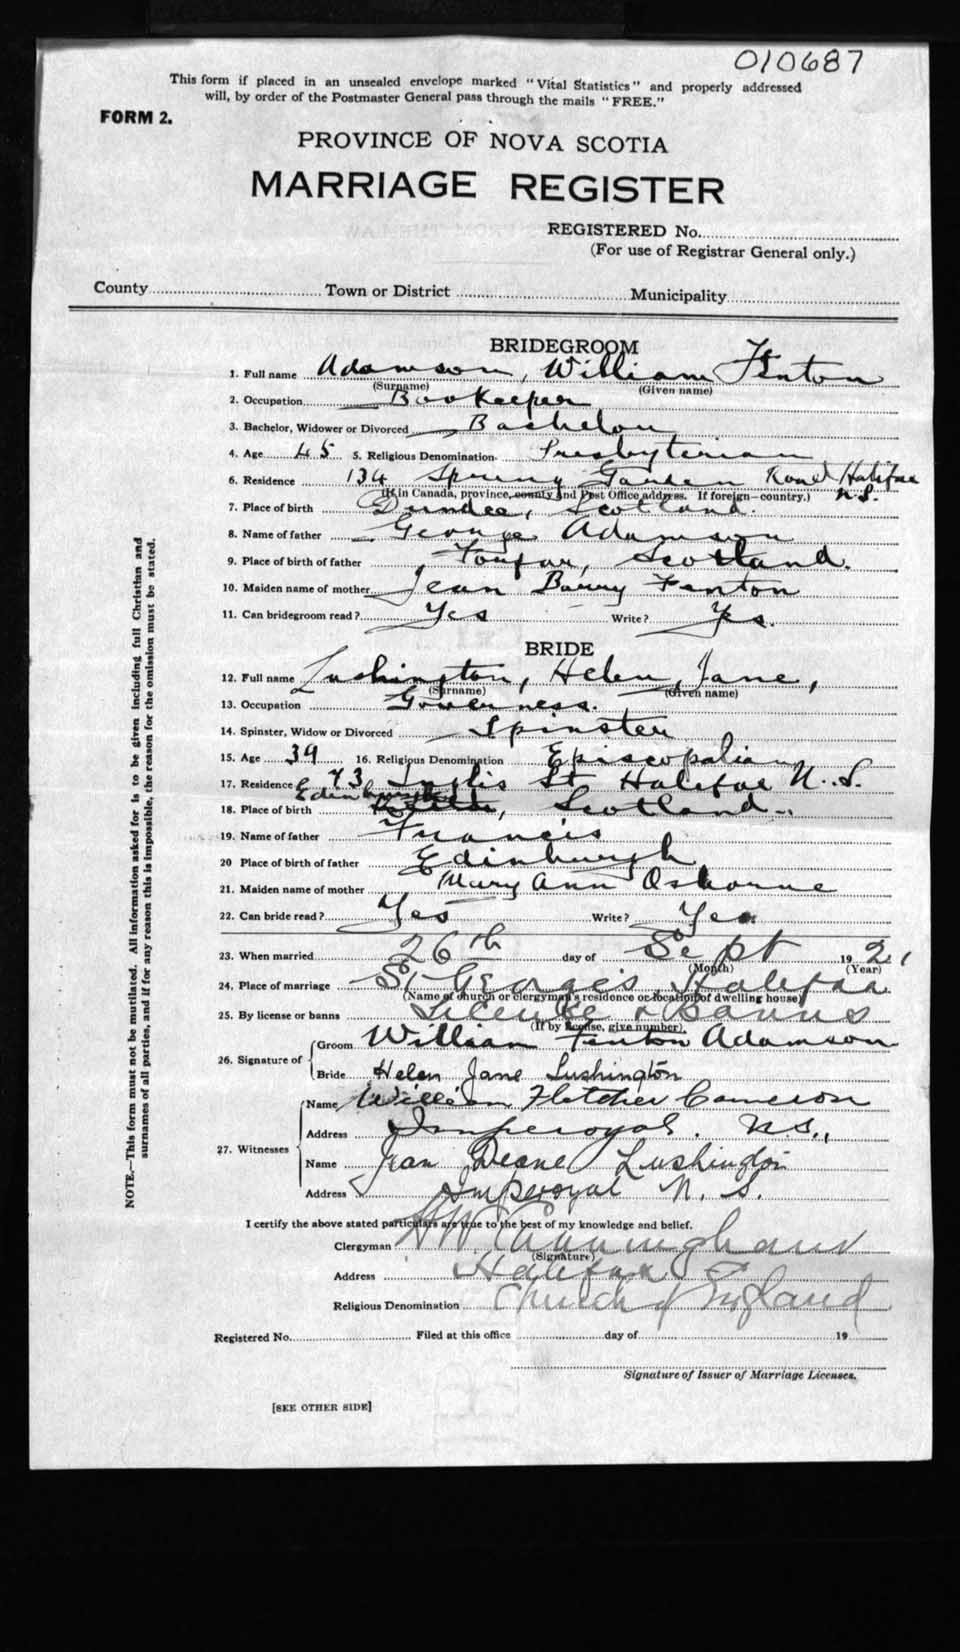 010687
This form if placed in an unsealed envelope marked "Vital Statistics" and properly addressed
will, by order of the Postmaster General pass through the mails "FREE."
FORM 2.
PROVINCE OF NOVA SCOTIA
MARRIAGE REGISTER
REGISTERED No.
(For use of Registrar General only.)
County Town or District Municipality
BRIDEGROOM
1. Full name Adamson, William Fenton
(Surname) (Given name)
2. Occupation Bookeeper
3. Bachelor, Widower or Divorced Bachelor
4. Age 45 5. Religious Denomination Presbyterian
6. Residence 134 Spring Garden Road Halifax N.S.
(If in Canada, province, county and Post Office address. If foreign—country.)
7. Place of birth Dundee, Scotland.
8. Name of father George Adamson
9. Place of birth of father Forfar, Scotland.
10. Maiden name of mother Jean Barry Fenton
11. Can bridegroom read? Yes Write? Yes.
BRIDE
12. Full name Lushington, Helen Jane,
(Surname) (Given name)
13. Occupation Governess.
14. Spinster, Widow or Divorced Spinster
15. Age 39 16. Religious Denomination Episcopalian
17. Residence 73 Inglis St Halifax N.S.
18. Place of birth Edinburgh, Scotland.
19. Name of father Francis
20 Place of birth of father Edinburgh
21. Maiden name of mother Mary Ann Osborne
22. Can bride read? Yes Write? Yes.
23. When married 26th day of Sept 1921
(Month) (Year)
24. Place of marriage St George's, Halifax
(Name of church or clergyman's residence or location of dwelling house)
25. By license or banns License & Banns
(If by license, give number)
26. Signature of
Groom William Fenton Adamson
Bride Helen Jane Lushington
27. Witnesses
Name William Fletcher Cameron
Address Imperoyal. N.S.,
Name Jean Deane Lushington
Address Imperoyal N. S.
I certify the above stated particulars are true to the best of my knowledge and belief.
Clergyman Cunningham
(Signature)
Address Halifax
Religious Denomination Church of England
Registered No. Filed at this office day of 19
Signature of Issuer of Marriage Licenses.
[SEE OTHER SIDE]
NOTE.—This form must not be mutilated. All information asked for is to be given including full Christian and
surnames of all parties, and if for any reason this is impossible, the reason for the omission must be stated.